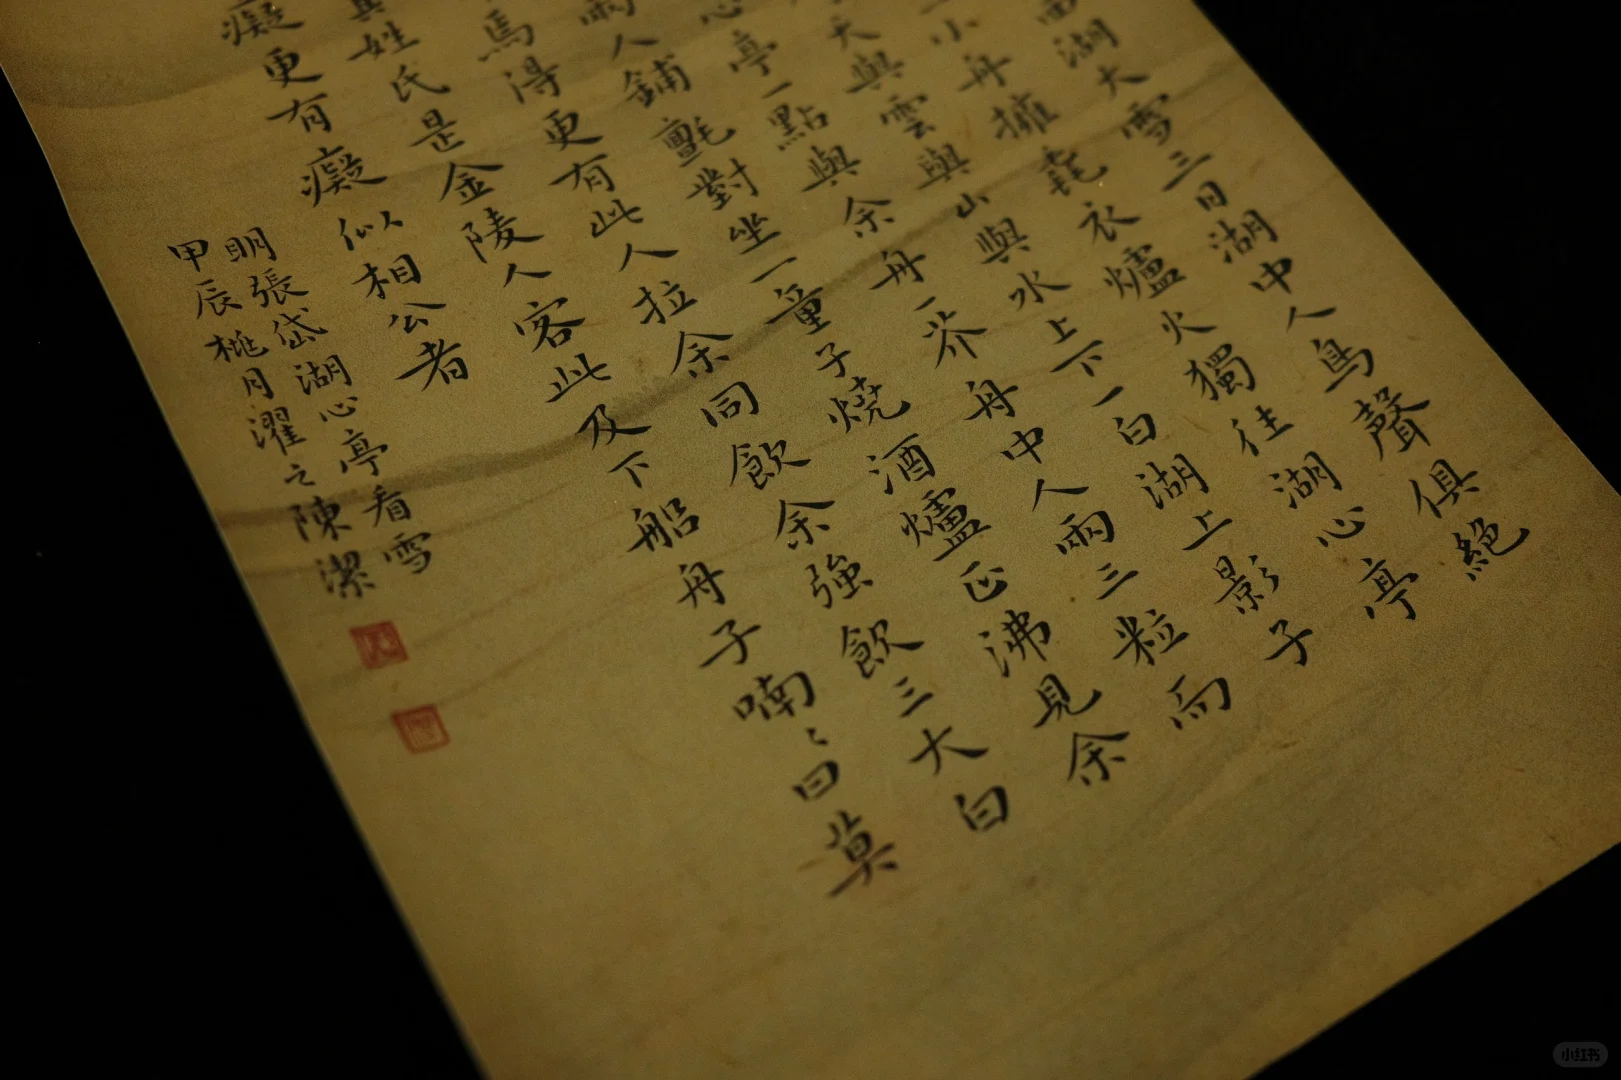 西湖大雪三日湖中人鳥聲俱絕
一小舟擁毳衣爐火獨往湖心亭
天與雲與山與水上下一白湖上影子
心亭一點與余舟一芥舟中人兩三粒而
兩人鋪氈對坐一童子燒酒爐正沸見余
焉得更有此人拉余同飲余強飲三大白
其姓氏是金陵人客此及下船舟子喃〻曰莫
癡更有癡似相公者
明張岱湖心亭看雪
甲辰桃月濯之陳潔
小红书